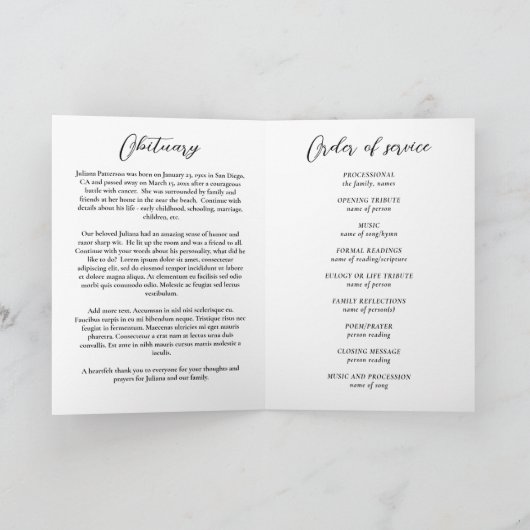 Obituary
Juliana Patterson was born on January 23, 19xx in San Diego,
CA and passed away on March 15, 20xx after a courageous
battle with cancer. She was surrounded by family and
friends at her home in the near the beach. Continue with
details about his life - early childhood, schooling, marriage,
children, etc.
Our beloved Juliana had an amazing sense of humor and
razor sharp wit. He lit up the room and was a friend to all.
Continue with your words about his personality, what did he
like to do? Lorem ipsum dolor sit amet, consectetur
adipiscing elit, sed do eiusmod tempor incididunt ut labore et
dolore magna aliqua. At elementum eu facilisis sed odio
morbi quis commodo odio. Molestie ac feugiat sed lectus
vestibulum.
Add more text. Accumsan in nisl nisi scelerisque eu.
Faucibus turpis in eu mi bibendum neque. Tristique risus nec
feugiat in fermentum. Maecenas ultricies mi eget mauris
pharetra. Consectetur a erat nam at lectus urna duis
convallis. Est ante in nibh mauris cursus mattis molestie a
iaculis.
A heartfelt thank you to everyone for your thoughts and
prayers for Juliana and our family.
Order of service
PROCESSIONAL
the family, names
OPENING TRIBUTE
name of person
MUSIC
name of song/hymn
FORMAL READINGS
name of reading/scripture
EULOGY OR LIFE TRIBUTE
name of person
FAMILY REFLECTIONS
name of person(s)
POEM/PRAYER
person reading
CLOSING MESSAGE
person reading
MUSIC AND PROCESSION
name of song